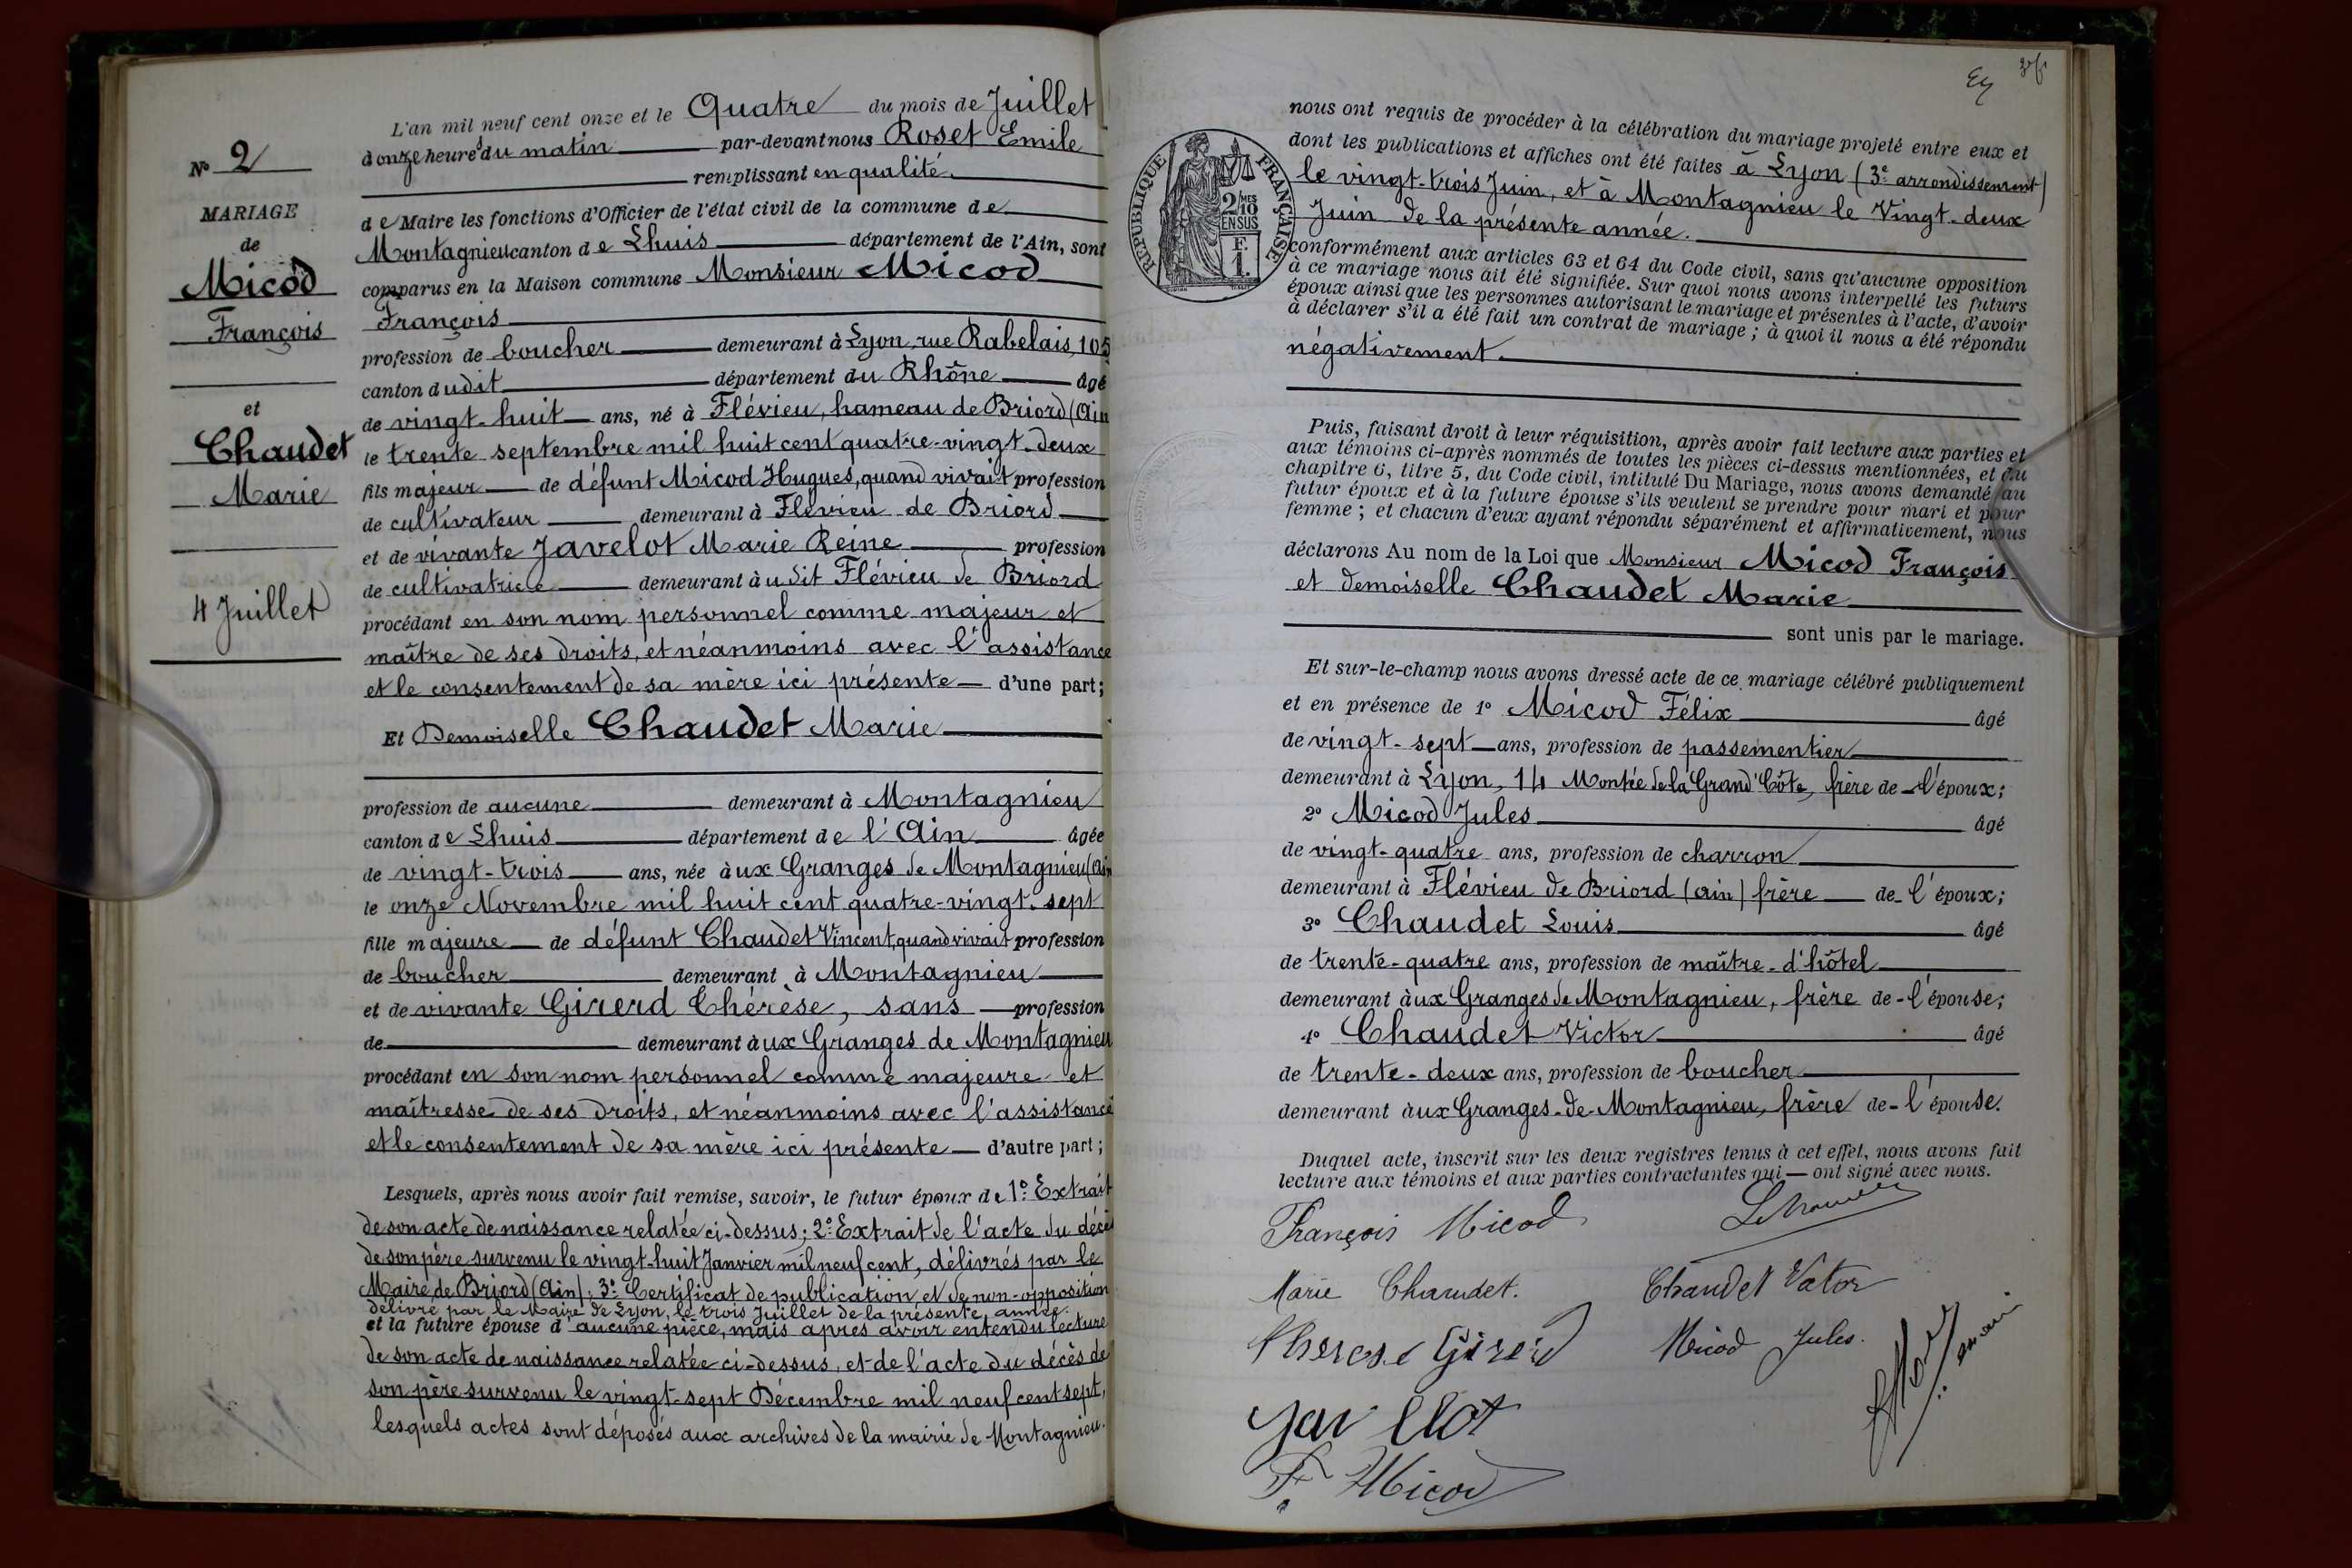 N° 2
MARIAGE
de
Micod
François
et
Chaudet
Marie
4 Juillet
L'an mil neuf cent onze et le Quatre du mois de Juillet
à onze heures du matin par-devant nous Roset Emile
remplissant en qualité
de Maire les fonctions d'Officier de l'état civil de la commune de
Montagnieu canton de Lhuis département de l'Ain, sont
comparus en la Maison commune Monsieur Micod
François
profession de boucher demeurant à Lyon, rue Rabelais, 105
canton dudit département du Rhône âgé
de vingt-huit ans, né à Flévieu, hameau de Briord (Ain
le trente septembre mil huit cent quatre-vingt-deux
fils majeur de défunt Micod Hugues, quand vivait profession
de cultivateur demeurant à Flévieu de Briord
et de vivante Javelot Marie Reine profession
de cultivatrice demeurant audit Flévieu de Briord
procédant en son nom personnel comme majeur et
maître de ses droits, et néanmoins avec l'assistance
et le consentement de sa mère ici présente d'une part;
Et Demoiselle Chaudet Marie
profession de aucune demeurant à Montagnieu
canton de Lhuis département de l'Ain âgée
de vingt-trois ans, née aux Granges de Montagnieu (Ain
le onze Novembre mil huit cent quatre-vingt-sept
fille majeure de défunt Chaudet Vincent, quand vivait profession
de boucher demeurant à Montagnieu
et de vivante Girerd Thérèse, sans profession
de demeurant aux Granges de Montagnieu
procédant en son nom personnel comme majeure et
maîtresse de ses droits, et néanmoins avec l'assistance
et le consentement de sa mère ici présente d'autre part;
Lesquels, après nous avoir fait remise, savoir, le futur époux de 1° Extrait
de son acte de naissance relatée ci-dessus; 2° Extrait de l'acte du décès
de son père survenu le vingt-huit Janvier mil neuf cent, délivrés par le
Maire de Briord (Ain); 3° Certificat de publication et de non-opposition
délivré par le Maire de Lyon, le trois Juillet de la présente année.
et la future épouse d'aucune pièce, mais après avoir entendu lecture
de son acte de naissance relatée ci-dessus, et de l'acte du décès de
son père survenu le vingt-sept Décembre mil neuf cent sept,
lesquels actes sont déposés aux archives de la mairie de Montagnieu.
nous ont requis de procéder à la célébration du mariage projeté entre eux et
dont les publications et affiches ont été faites à Lyon (3e arrondissement)
le vingt-trois Juin, et à Montagnieu le Vingt-deux
Juin de la présente année.
RÉPUBLIQUE FRANÇAISE
2/10MES
EN SUS
F.
1.
conformément aux articles 63 et 64 du Code civil, sans qu'aucune opposition
à ce mariage nous ait été signifiée. Sur quoi nous avons interpellé les futurs
époux ainsi que les personnes autorisant le mariage et présentes à l'acte, d'avoir
à déclarer s'il a été fait un contrat de mariage; à quoi il nous a été répondu
négativement.
Puis, faisant droit à leur réquisition, après avoir fait lecture aux parties et
aux témoins ci-après nommés de toutes les pièces ci-dessus mentionnées, et du
chapitre 6, titre 5, du Code civil, intitulé Du Mariage, nous avons demandé au
futur époux et à la future épouse s'ils veulent se prendre pour mari et pour
femme; et chacun d'eux ayant répondu séparément et affirmativement, nous
déclarons Au nom de la Loi que Monsieur Micod François
et demoiselle Chaudet Marie
sont unis par le mariage.
Et sur-le-champ nous avons dressé acte de ce mariage célébré publiquement
et en présence de 1° Micod Félix âgé
de vingt-sept ans, profession de passementier
demeurant à Lyon, 14 Montée de la Grand'Côte, frère de l'époux;
2° Micod Jules âgé
de vingt-quatre ans, profession de charron
demeurant à Flévieu de Briord (ain) frère de l'époux;
3° Chaudet Louis âgé
de trente-quatre ans, profession de maître-d'hôtel
demeurant aux Granges de Montagnieu, frère de l'épouse;
4° Chaudet Victor âgé
de trente-deux ans, profession de boucher
demeurant aux Granges-de-Montagnieu, frère de l'épouse.
Duquel acte, inscrit sur les deux registres tenus à cet effet, nous avons fait
lecture aux témoins et aux parties contractantes qui ont signé avec nous.
François Micod
Marie Chaudet.
Chaudet Vator
Therese Girerd
Micod Jules.
Javellot
F. Micod